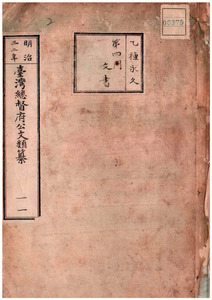 乙種永久
第四門
文書
明治
三二年
臺灣總督府公文類纂
一一
2